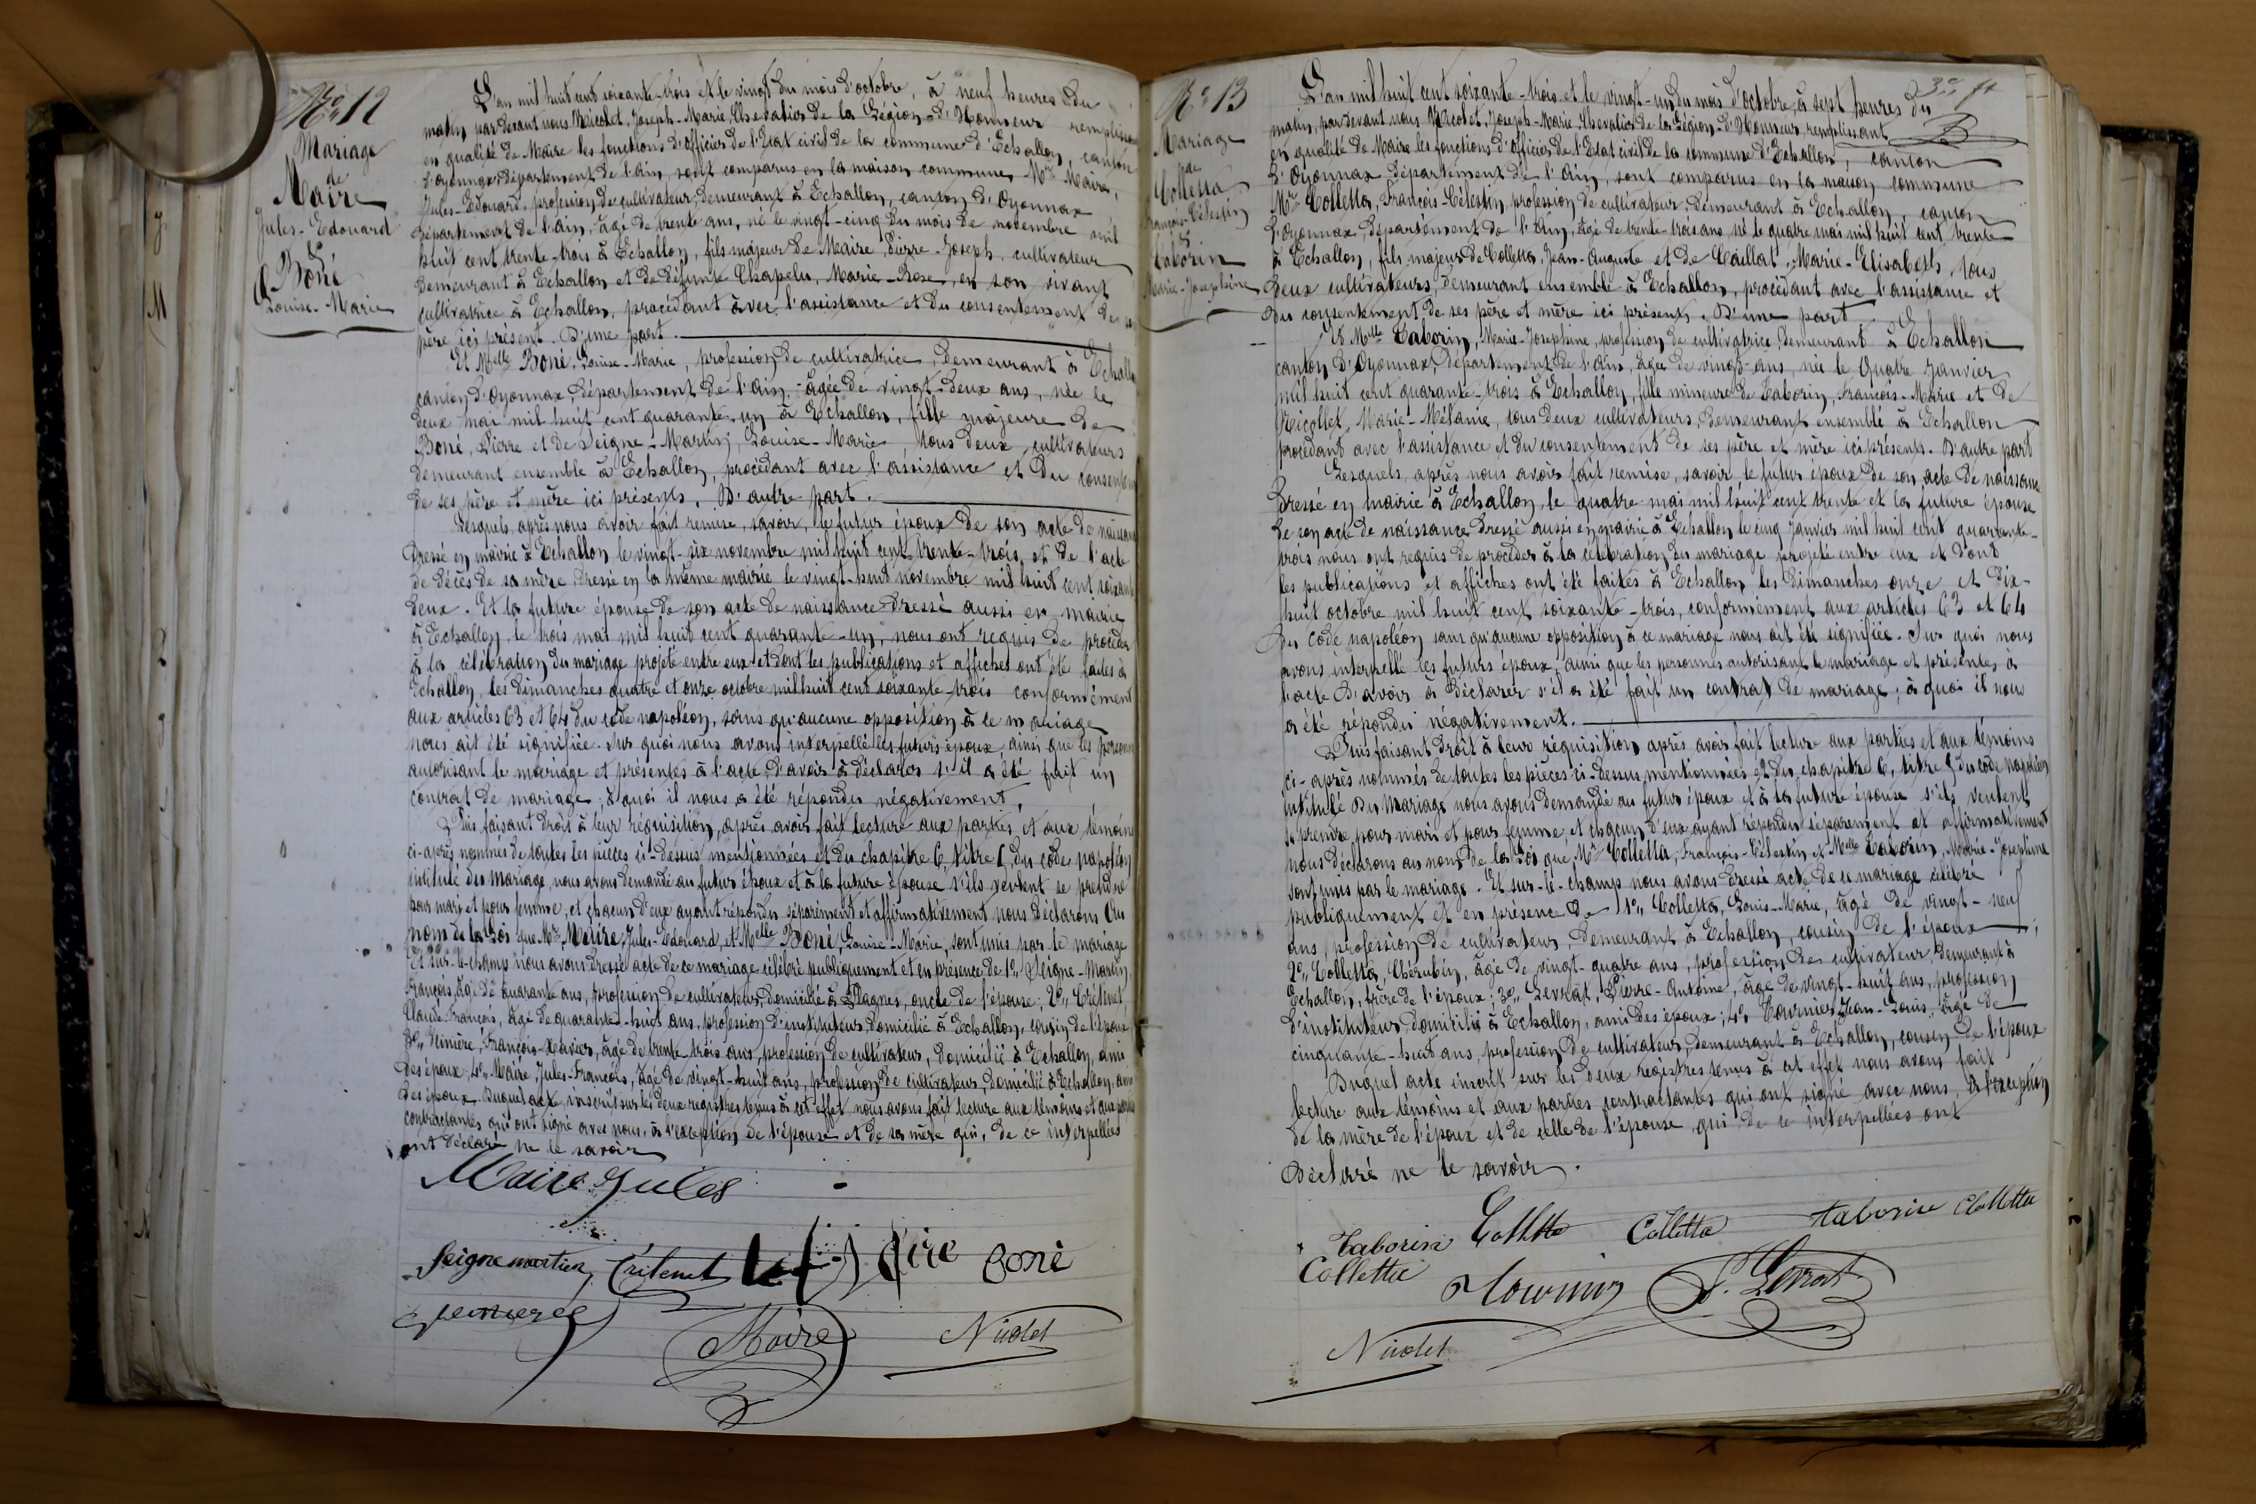 No 12
Mariage
de
Maire
Jules-Edouard
&
Boné
Louise-Marie
L'an mil huit cent soixante-trois et le vingt du mois d'octobre, à neuf heures du
matin par devant nous Nicolet, Joseph-Marie, Chevalier de la Légion-d'Honneur remplissant
en qualité de Maire les fonctions d'officier de l'Etat civil de la commune d'Echallon, canton
d'Oyonnax, département de l'Ain, sont comparus en la maison commune, Mr Maire,
Jules-Edouard, profession de cultivateur, demeurant à Echallon, canton d'Oyonnax
département de l'Ain, âgé de trente ans, né le vingt-cinq du mois de novembre mil
huit cent trente-trois à Echallon, fils majeur de Maire Pierre-Joseph, cultivateur
demeurant à Echallon et de défunte Chapelu, Marie-Rose, en son vivant
cultivatrice à Echallon, procédant avec l'assistance et du consentement de son
père ici présent. D'une part.
Et Melle Boné, Louise-Marie, profession de cultivatrice, demeurant à Echallon
canton d'Oyonnax, département de l'Ain, âgée de vingt-deux ans, née le
deux mai mil huit cent quarante-un à Echallon, fille majeure de
Boné, Pierre et de Seigne-Martin, Louise-Marie, tous deux cultivateurs
demeurant ensemble à Echallon, procédant avec l'assistance et du consentement
de ses père et mère ici présents. D'autre part.
Lesquels, après nous avoir fait remise, savoir, le futur époux de son acte de naissance
dressé en mairie à Echallon le vingt-six novembre mil huit cent trente-trois et de l'acte
de décès de sa mère dressé en la même mairie le vingt-huit novembre mil huit cent soixante
deux. Et la future épouse de son acte de naissance dressé aussi en mairie
à Echallon le trois mai mil huit cent quarante-un, nous ont requis de procéder
à la célébration du mariage projeté entre eux et dont les publications et affiches ont été faites à
Echallon, les dimanches quatre et onze octobre mil huit cent soixante-trois conformément
aux articles 63 et 64 du code napoléon, sans qu'aucune opposition à ce mariage
nous ait été signifiée. Sur quoi nous avons interpellé les futurs époux, ainsi que les personnes
autorisant le mariage et présentes à l'acte d'avoir à déclarer s'il a été fait un
contrat de mariage, à quoi il nous a été répondu négativement.
Puis faisant droit à leur réquisition, après avoir fait lecture aux parties et aux témoins
ci-après nommés de toutes les pièces ci-dessus mentionnées et du chapitre 6, titre 5, du code napoléon
intitulé du mariage, nous avons demandé au futur époux et à la future épouse s'ils veulent se prendre
pour mari et pour femme, et chacun d'eux ayant répondu séparément et affirmativement nous déclarons au
nom de la loi que Mr Maire, Jules-Edouard, et Melle Boné, Louise-Marie, sont unis par le mariage.
Et sur-le-champ nous avons dressé acte de ce mariage célébré publiquement et en présence de 1o,, Seigne-Martin,
François, âgé de quarante ans, profession de cultivateur, domicilié à Plagnes, oncle de l'épouse; 2o,, Crétinet
Claude-François, âgé de quarante-huit ans, profession d'instituteur, domicilié à Echallon, cousin de l'époux
3o,, Ninière, François-Xavier, âgé de trente-trois ans, profession de cultivateur, domicilié à Echallon, ami
des époux; 4o,, Maire, Jules-François, âgé de vingt-huit ans, profession de cultivateur, domicilié à Echallon, ami
des époux. Duquel acte inscrit sur les deux registres tenus à cet effet nous avons fait lecture aux témoins et aux parties
contractantes qui ont signé avec nous, à l'exception de l'épouse et de sa mère qui, de ce interpellées
ont déclaré ne le savoir
Maire Jules
Seigne martin Crétenet Maire Boné
Maire Nicolet
23e ft
No 13
Mariage
de
Colletta
François-Célestin
&
Taborin
Marie-Joséphine
L'an mil huit cent soixante-trois et le vingt-un du mois d'octobre, à sept heures du
matin, par devant nous Nicolet, Joseph-Marie, Chevalier de la Légion-d'Honneur, remplissant
en qualité de Maire les fonctions d'officier de l'Etat civil de la commune d'Echallon, canton
d'Oyonnax, département de l'Ain, sont comparus en la maison commune
Mr Colletta, François-Célestin, profession de cultivateur, demeurant à Echallon, canton
d'Oyonnax, département de l'Ain, âgé de trente-trois ans, né le quatre mai mil huit cent trente
à Echallon, fils majeur de Colletta, Jean-Auguste et de Caillat, Marie-Elisabeth, tous
deux cultivateurs, demeurant ensemble à Echallon, procédant avec l'assistance et
du consentement de ses père et mère ici présents. D'une part
Et Melle Taborin, Marie-Joséphine, profession de cultivatrice, demeurant à Echallon
canton d'Oyonnax, département de l'Ain, âgée de vingt-ans, née le quatre janvier
mil huit cent quarante-trois à Echallon, fille mineure de Taborin, François-Marie et de
Nicollet, Marie-Mélanie, tous deux cultivateurs, demeurant ensemble à Echallon
procédant avec l'assistance et du consentement de ses père et mère ici présents. D'autre part
Lesquels, après nous avoir fait remise, savoir le futur époux de son acte de naissance
dressé en mairie à Echallon le quatre mai mil huit cent trente et la future épouse
de son acte de naissance dressé aussi en mairie à Echallon le cinq janvier mil huit cent quarante-
trois nous ont requis de procéder à la célébration du mariage projeté entre eux et dont
les publications et affiches ont été faites à Echallon, les dimanches onze et dix-
huit octobre mil huit cent soixante-trois, conformément aux articles 63 et 64
du code napoléon sans qu'aucune opposition à ce mariage nous ait été signifiée. Sur quoi nous
avons interpellé les futurs époux, ainsi que les personnes autorisant le mariage et présentes à
l'acte d'avoir à déclarer s'il a été fait un contrat de mariage; à quoi il nous
a été répondu négativement.
Puis faisant droit à leur réquisition, après avoir fait lecture aux parties et aux témoins
ci-après nommés de toutes les pièces ci-dessus mentionnées et du chapitre 6, titre 5 du code napoléon
intitulé du Mariage nous avons demandé au futur époux et à la future épouse s'ils veulent
se prendre pour mari et pour femme, et chacun d'eux ayant répondu séparément et affirmativement
nous déclarons au nom de la loi que Mr Colletta, François-Célestin et Melle Taborin, Marie-Joséphine
sont unis par le mariage. Et sur-le-champ nous avons dressé acte de ce mariage célébré
publiquement et en présence de 1o,, Colletta, Louis-Marie, âgé de vingt-neuf
ans, profession de cultivateur, demeurant à Echallon, cousin de l'époux;
2o,, Colletta, Chérubin, âgé de vingt-quatre ans, profession de cultivateur, demeurant à
Echallon, frère de l'époux; 3o,, Levrat, Pierre-Antoine, âgé de vingt-huit ans, profession
d'instituteur, domicilié à Echallon, ami des époux; 4o, Tournier, Jean-Louis, âgé de
cinquante-huit ans, profession de cultivateur, demeurant à Echallon, cousin de l'époux
Duquel acte inscrit sur les deux registres tenus à cet effet nous avons fait
lecture aux témoins et aux parties contractantes qui ont signé avec nous, à l'exception
de la mère de l'époux et de celle de l'épouse qui de ce interpellées ont
déclaré ne le savoir.
Taborin Colletta Colletta taborin Colletta
Colletta Tournier P. Levrat
Nicolet